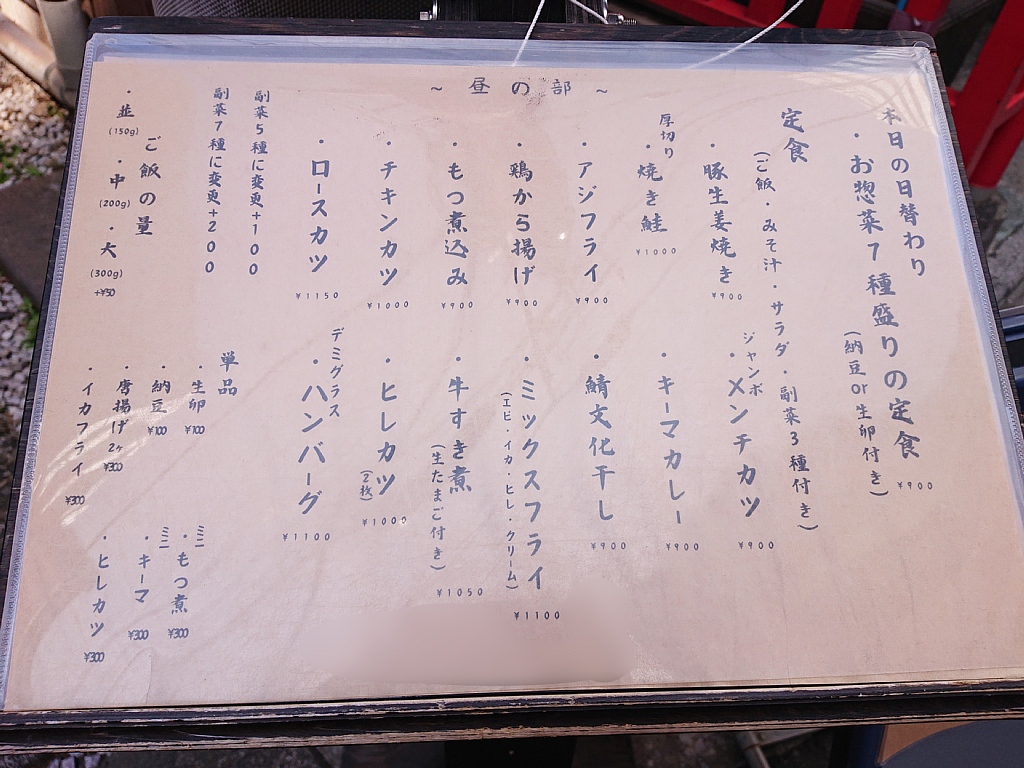 ～ 昼の部 ～
本日の日替わり
・お惣菜7種盛りの定食
(納豆or生卵付き)
¥900
定食
(ご飯・みそ汁・サラダ・副菜3種付き)
・豚生姜焼き
¥900
厚切り
・焼き鮭
¥1000
・アジフライ
¥900
・鶏から揚げ
¥900
・もつ煮込み
¥900
・チキンカツ
¥1000
・ロースカツ
¥1150
ジャンボ
・メンチカツ
¥900
・キーマカレー
¥900
・鯖文化干し
¥900
・ミックスフライ
(エビ・イカ・ヒレ・クリーム)
¥1100
・牛すき煮
(生たまご付き)
¥1050
・ヒレカツ
(2枚)
¥1000
デミグラス
・ハンバーグ
¥1100
副菜5種に変更+100
副菜7種に変更+200
ご飯の量
・並
(150g)
・中
(200g)
・大
(300g)
+¥50
単品
・生卵
¥100
・納豆
¥100
・唐揚げ2ヶ
¥300
・イカフライ
¥300
ミニ
・もつ煮
¥300
ミニ
・キーマ
¥300
・ヒレカツ
¥300